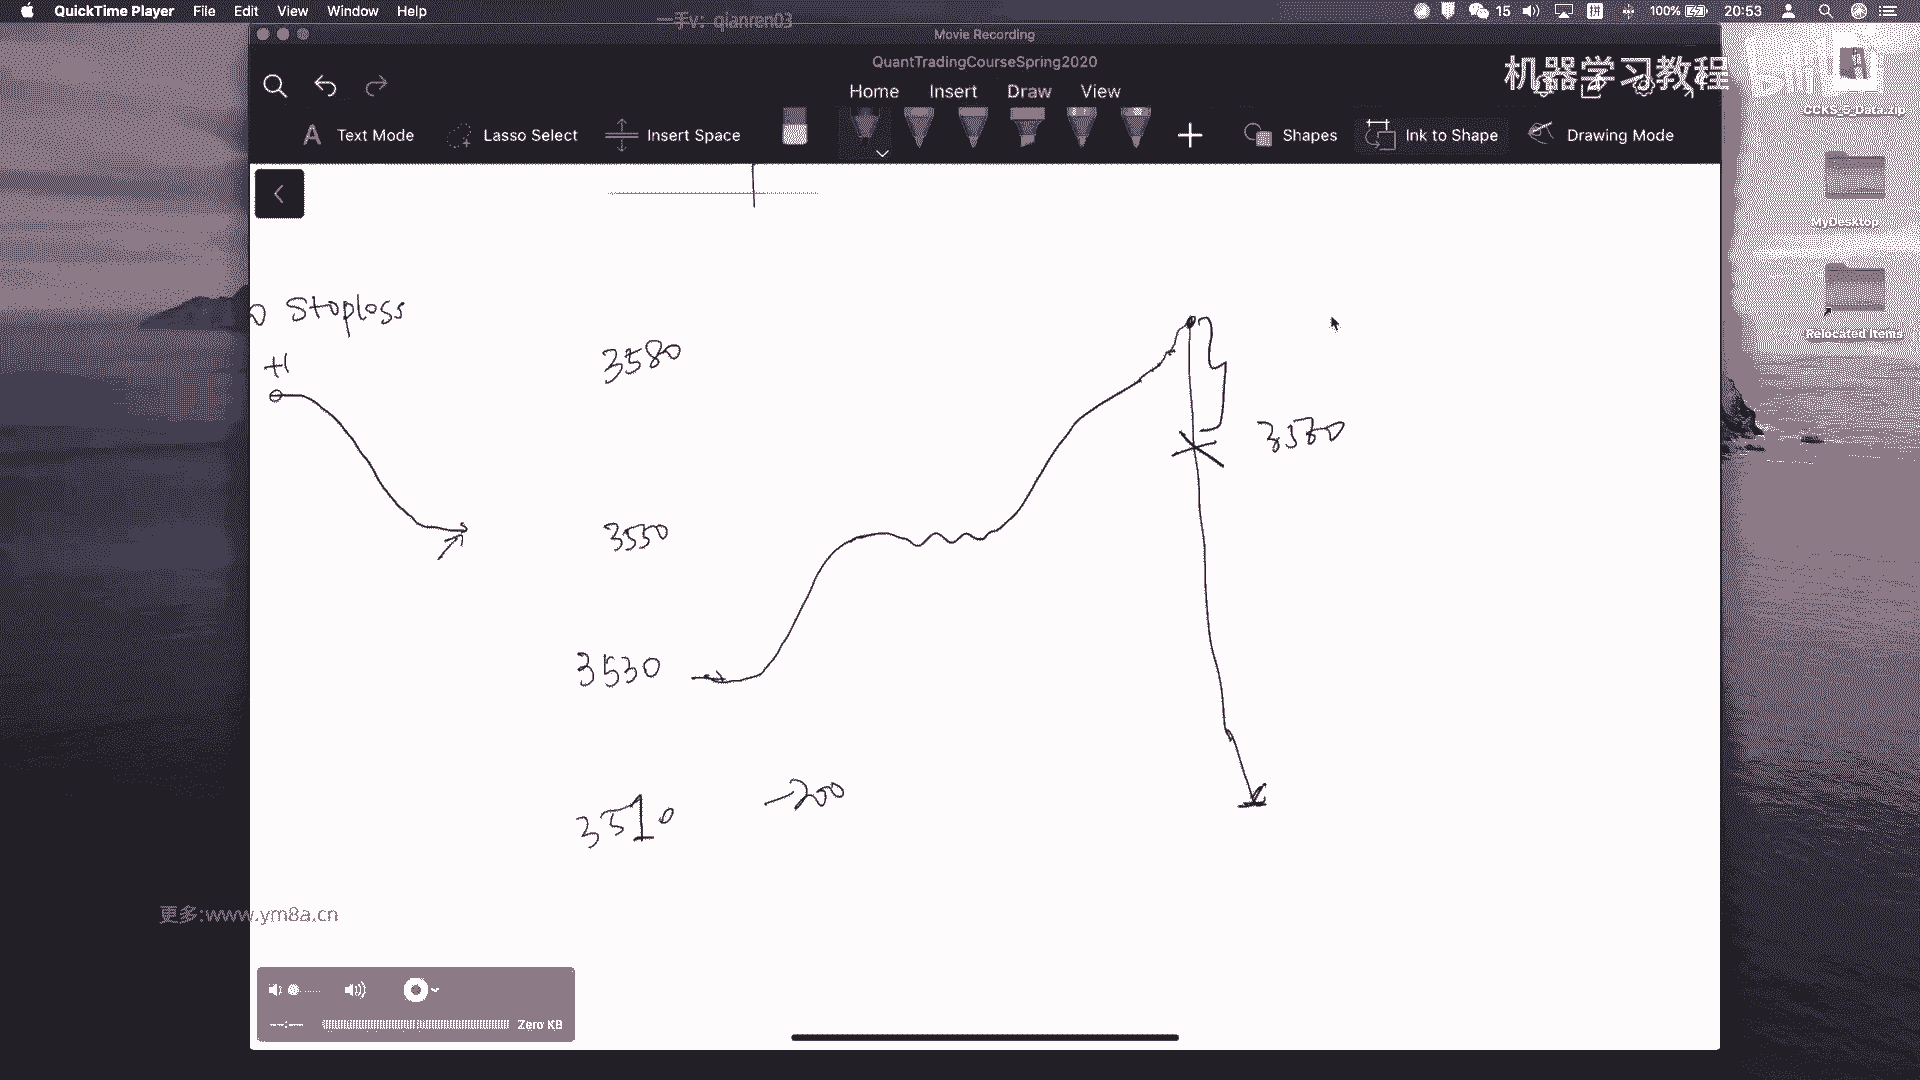 QuickTime Player File Edit View Window Help
15 100% 20:53
一手v: qianren03
Movie Recording
QuantTradingCourseSpring2020
Home Insert Draw View
机器学习教程
Text Mode Lasso Select Insert Space Shapes Ink to Shape Drawing Mode
CCKS_5_Data.zip
MyDesktop
Relocated Items
Stoploss
+1
3580
3550
3530
3510 -200
更多:www.ym8a.cn
--:-- Zero KB